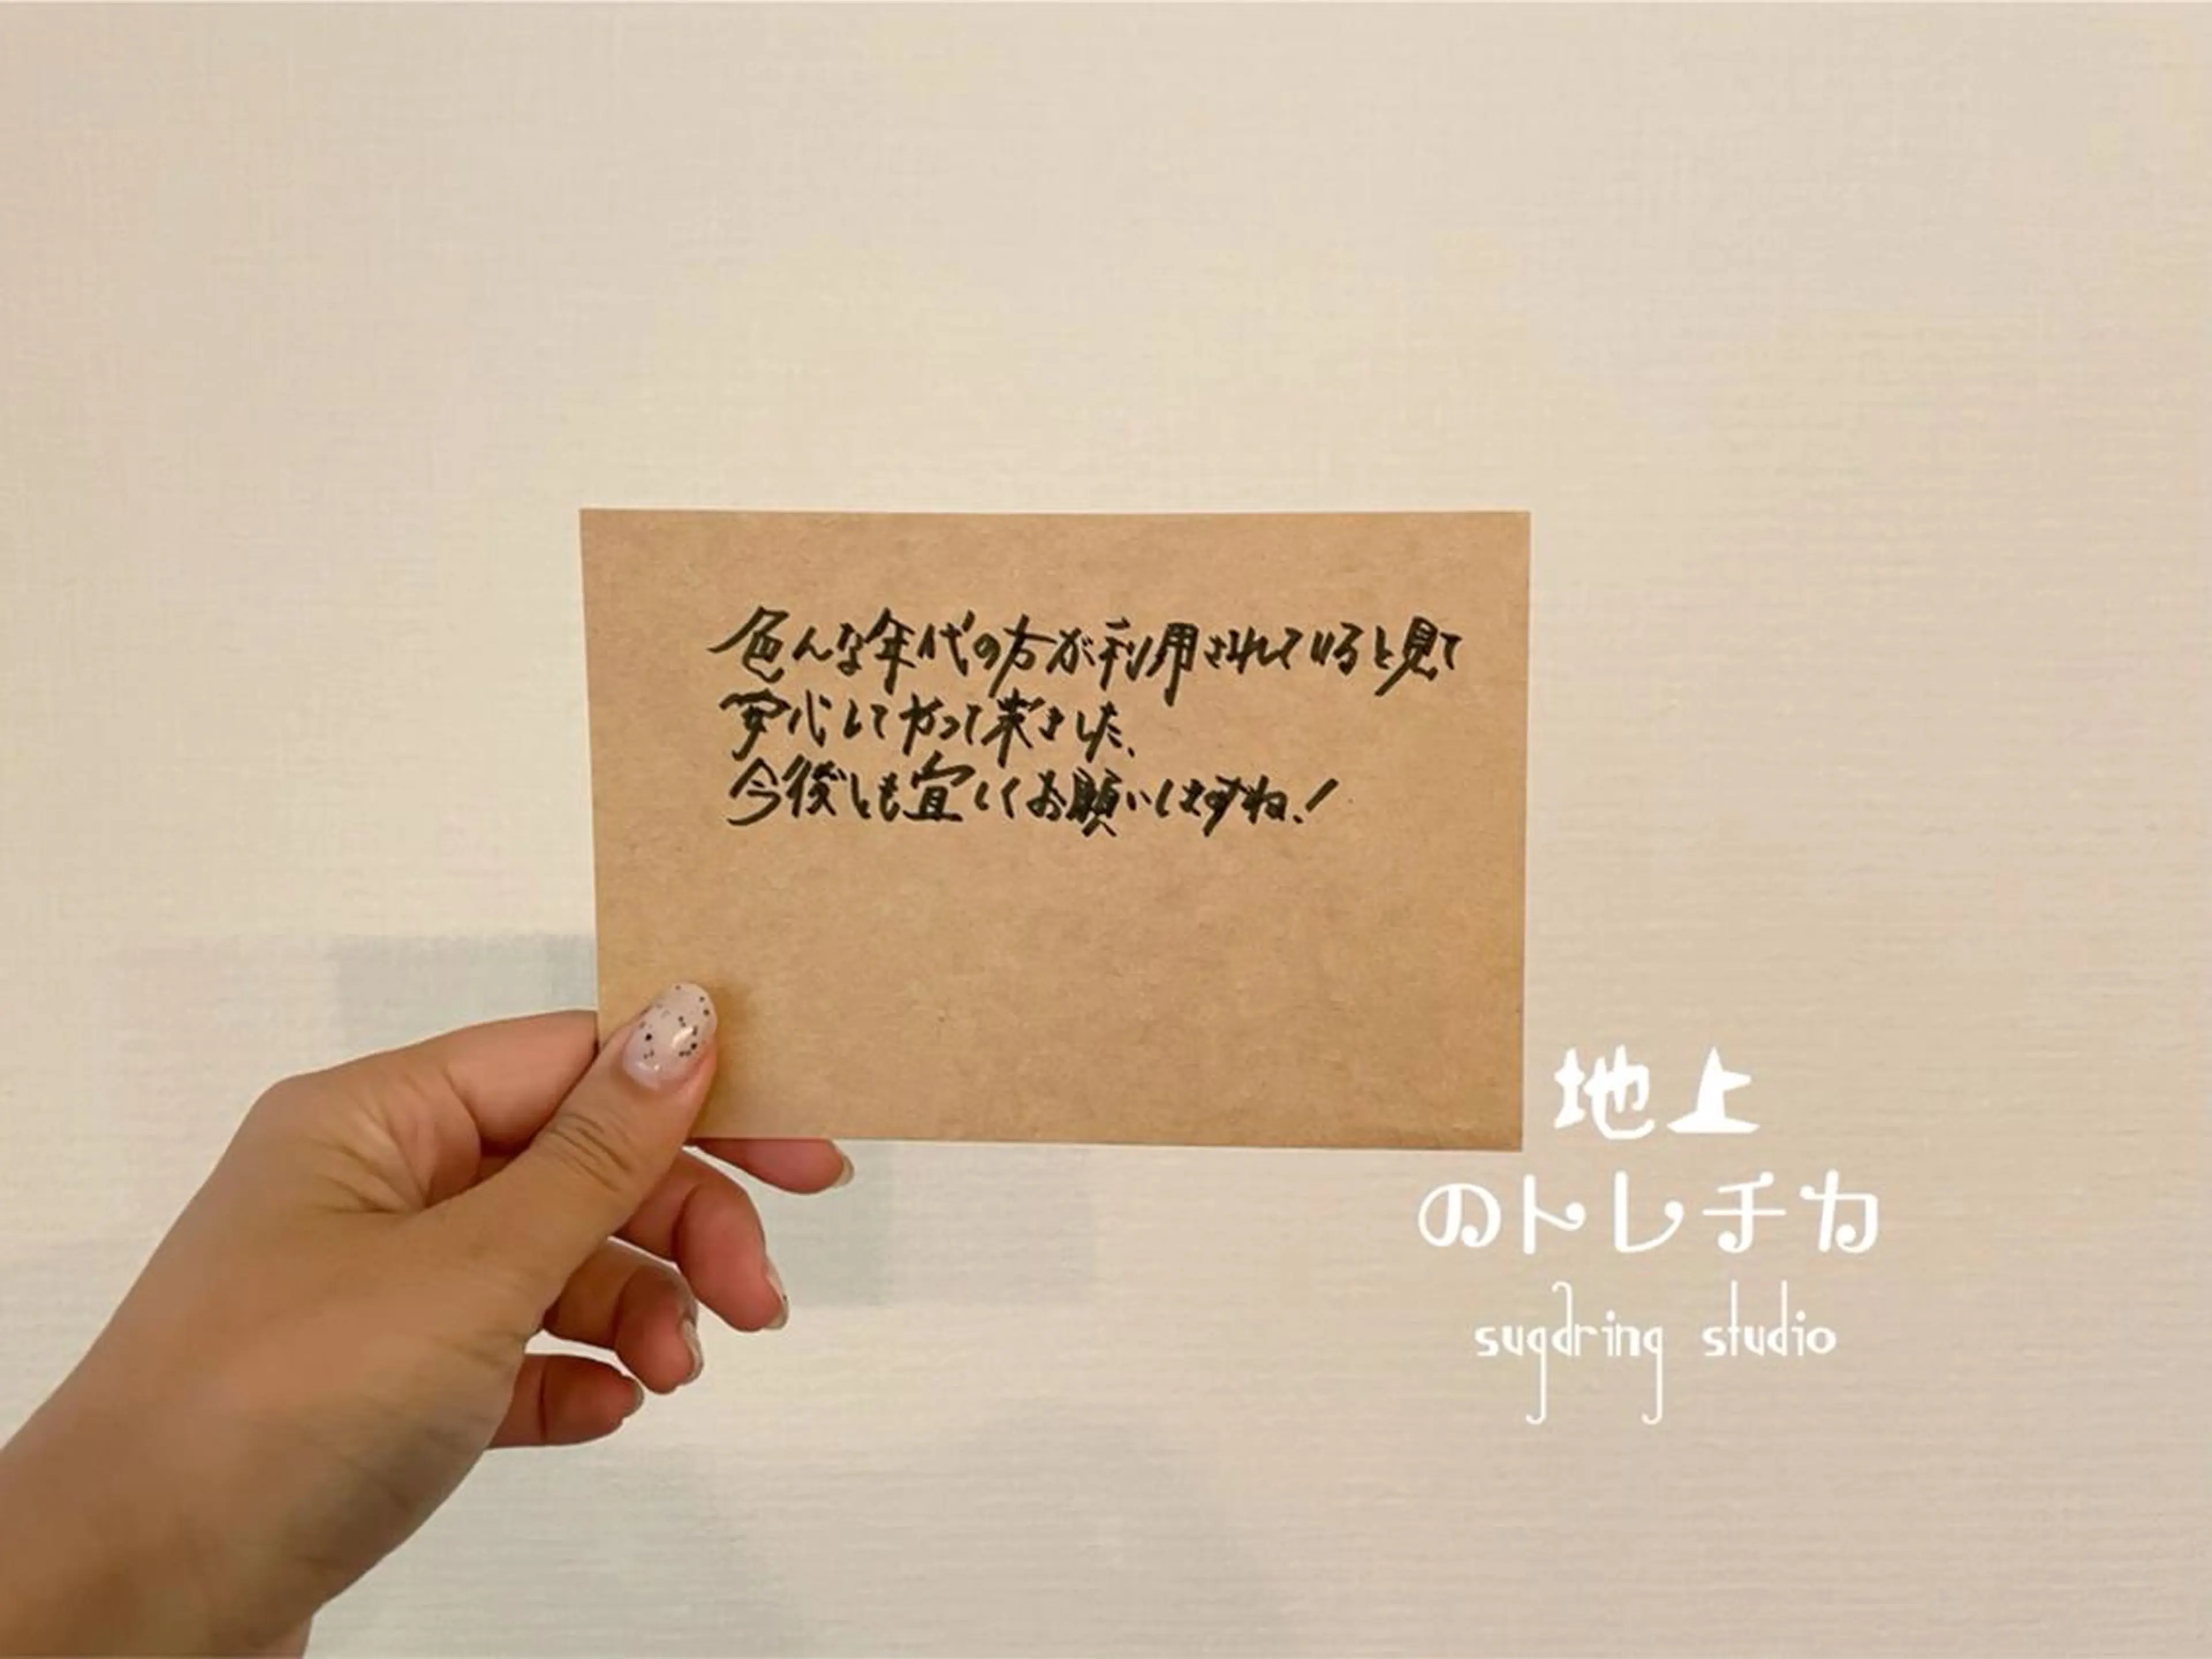 色んな年代の方が利用されていると見て
安心してやって来ました、
今後とも宜しくお願いしますね！
地上
のトレチカ
sugdring studio